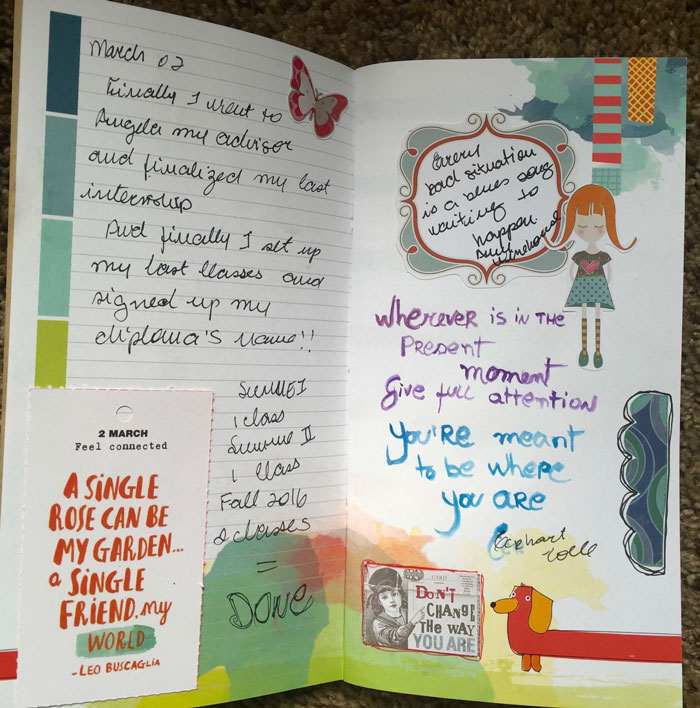 March 02
Finally I went to
Angela my advisor
and finalized my last
internship
And finally I set up
my last classes and
signed up my
diploma's name!!
Summer I
1 class
Summer II
1 class
Fall 2016
2 classes
=
DONE
2 MARCH
Feel connected
A SINGLE
ROSE CAN BE
MY GARDEN...
a SINGLE
FRIEND, my
WORLD
- LEO BUSCAGLIA
Every
bad situation
is a blues song
waiting to
happen.
Amy
Winehouse
Wherever is in the
Present
moment
Give full attention
You're meant
to be where
you are
Eckhart
Tolle
CARD
DON'T
CHANGE
THE WAY
YOU ARE